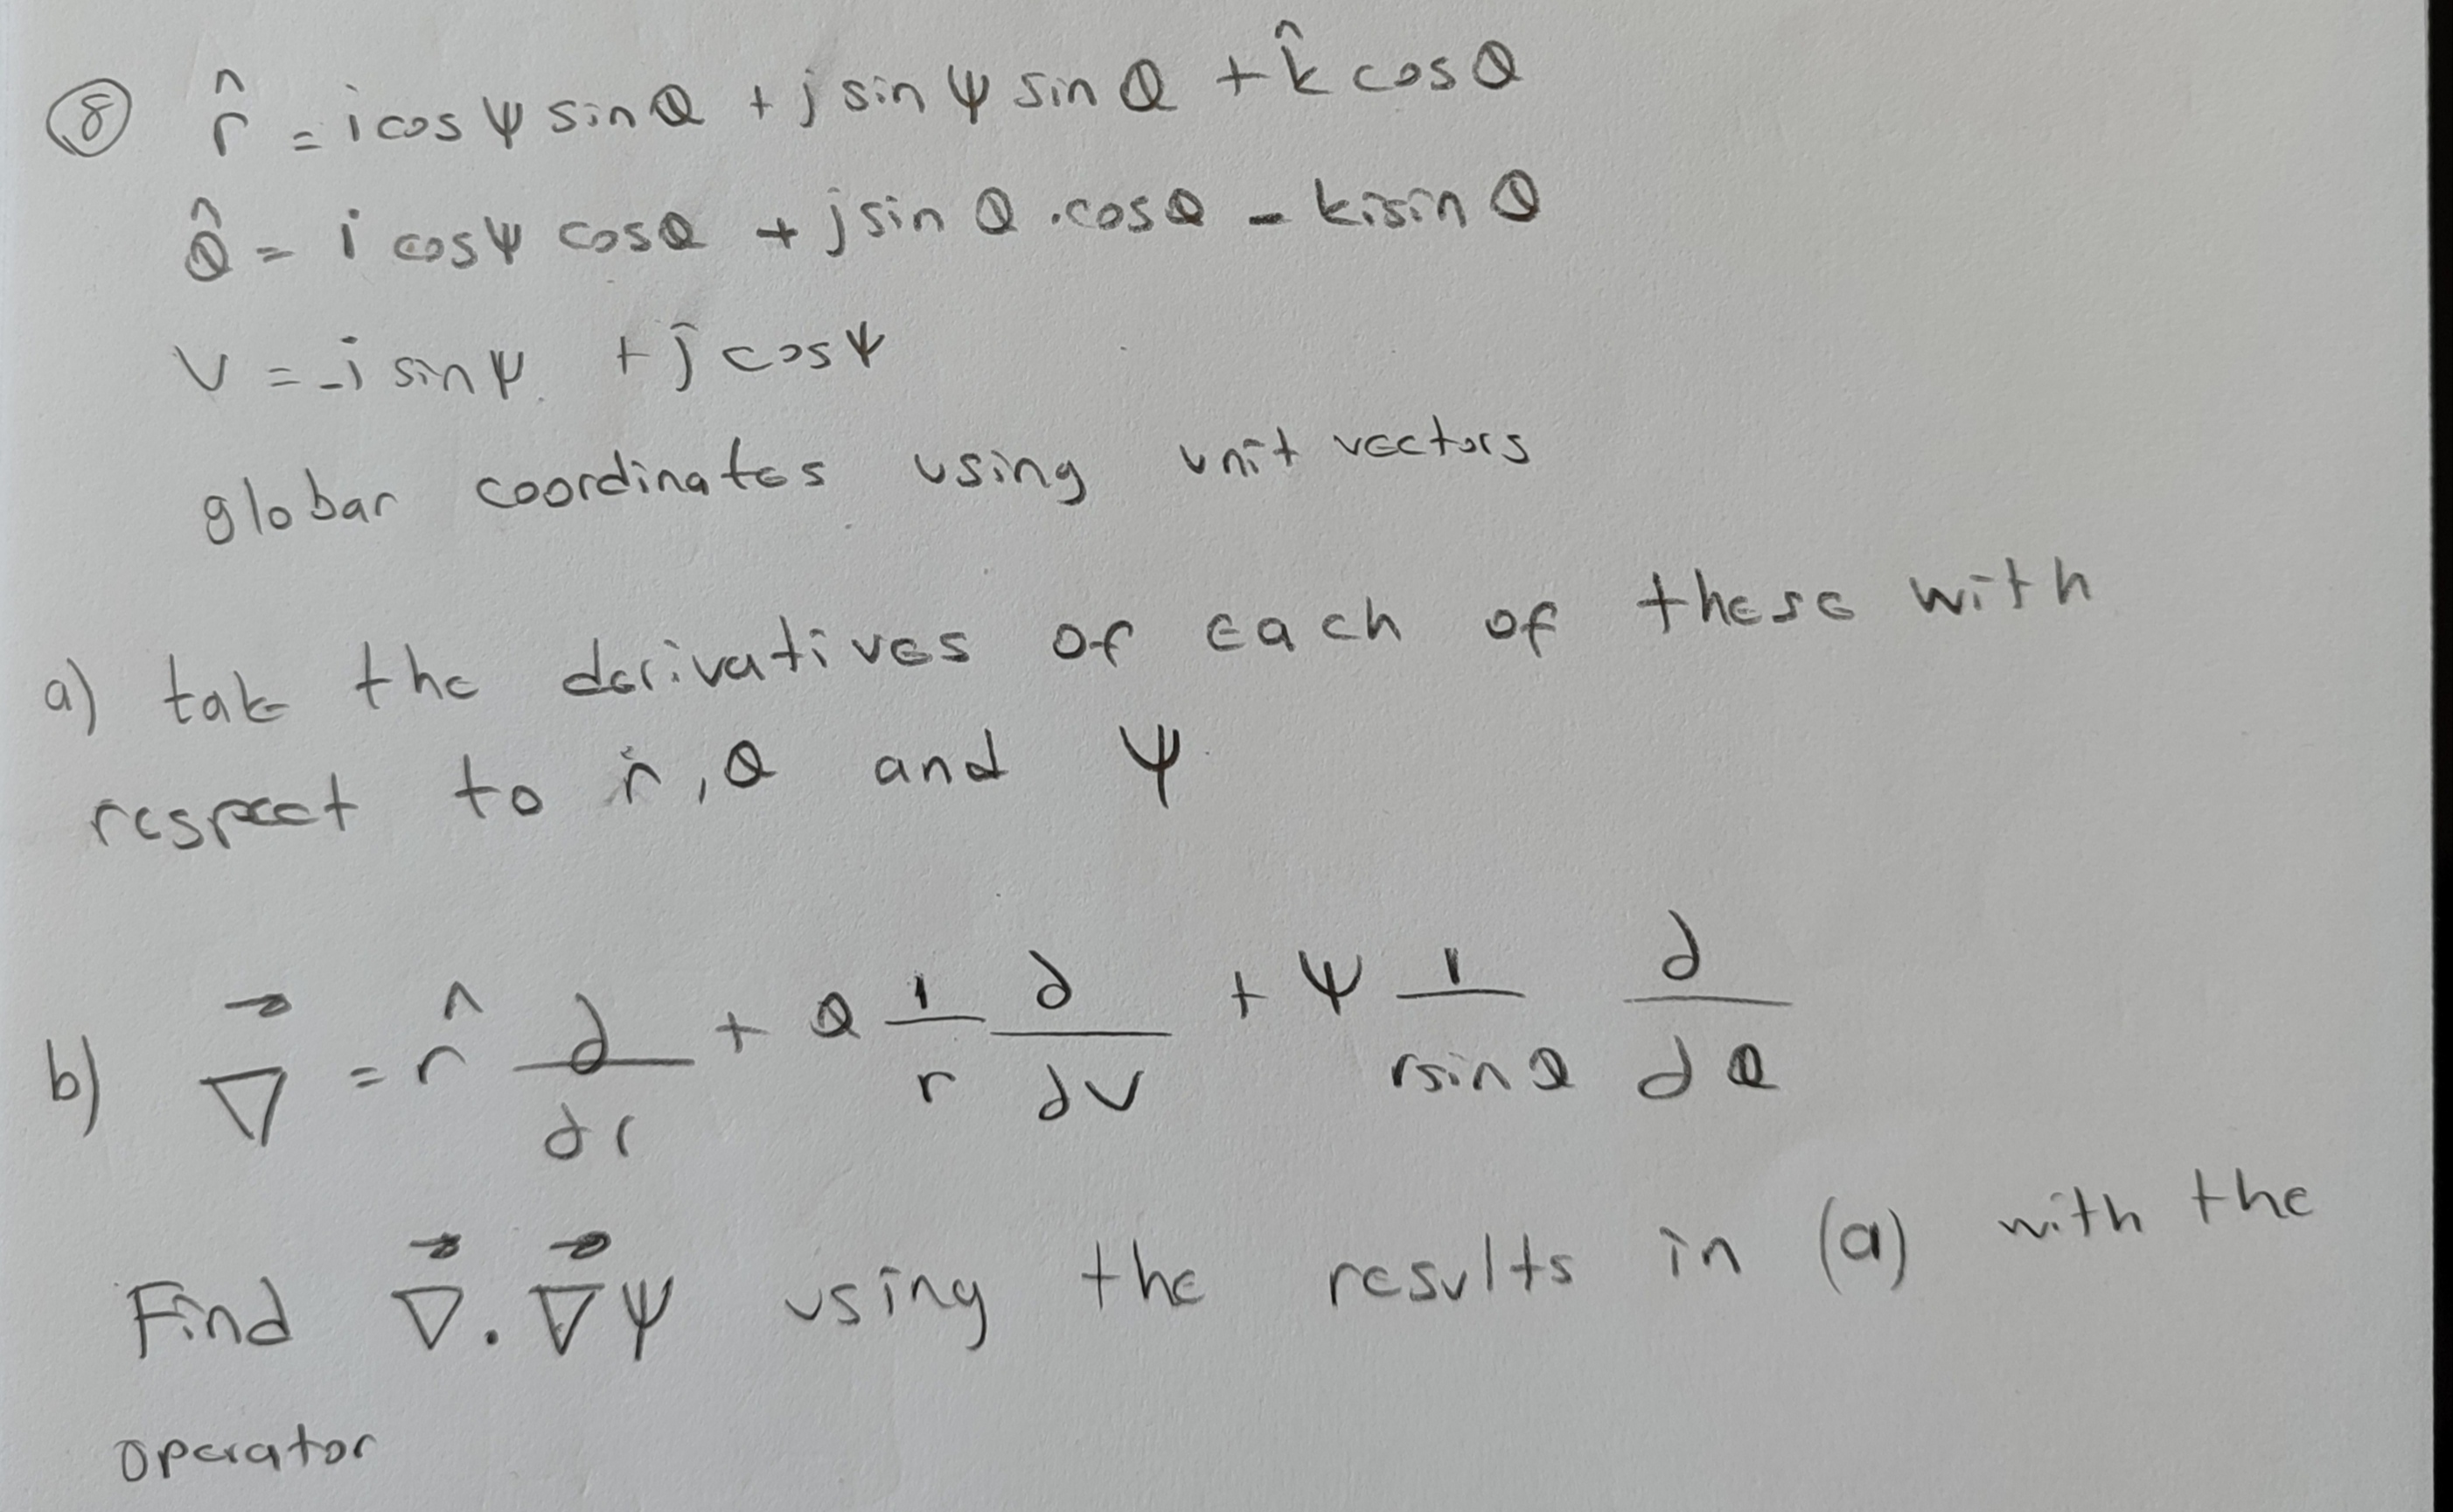 ⑧ r̂ = i cos ψ sin θ + j sin ψ sin θ + k̂ cos θ
θ̂ = i cos ψ cos θ + j sin θ . cos θ - k sin θ
V = -i sin ψ + j cos ψ
globar coordinates using unit vectors
a) take the derivatives of each of these with
respect to r, θ and ψ
b) ∇⃗ = r̂ ∂/∂r + θ 1/r ∂/∂v + ψ 1/(r sin θ) ∂/∂θ
Find ∇⃗ . ∇⃗ψ using the results in (a) with the
operator